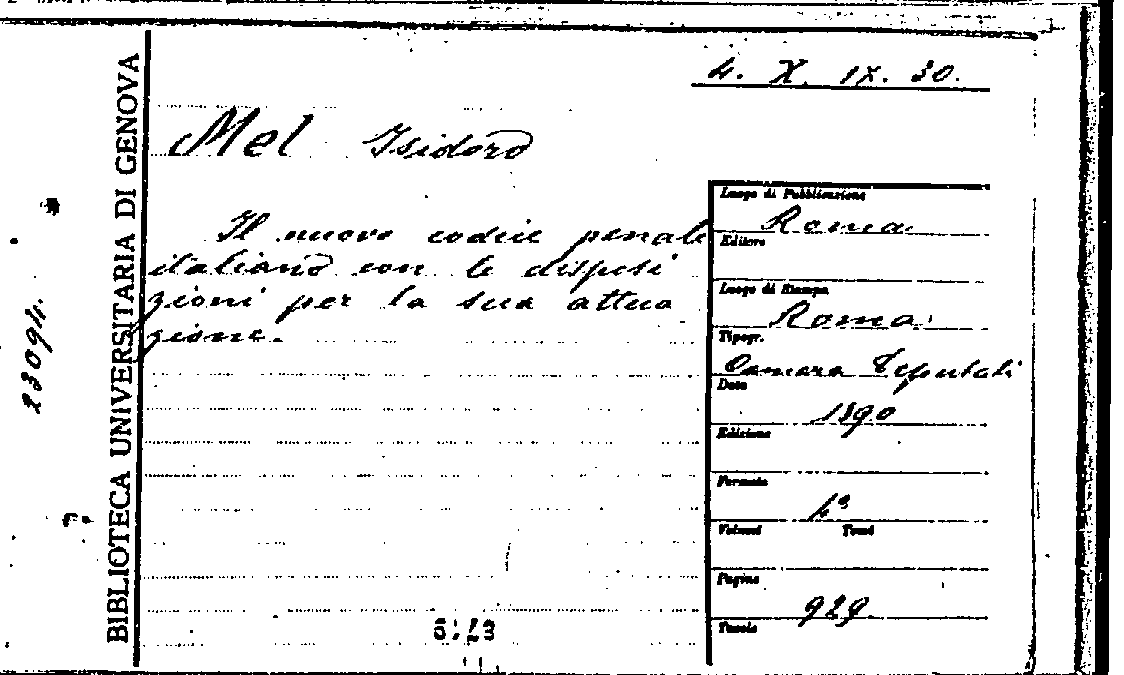 4. X. IX. 30.
Mel Isidoro
Il nuovo codice penale
italiano con le disposi
zioni per la sua attua
zione.
BIBLIOTECA UNIVERSITARIA DI GENOVA
23094.
Luogo di Pubblicazione
Roma
Editore
Luogo di Stampa
Roma
Tipogr.
Camera Deputati
Data
1890
Edizione
Formato
4°
Volumi Tomi
Pagine
929
Tavole